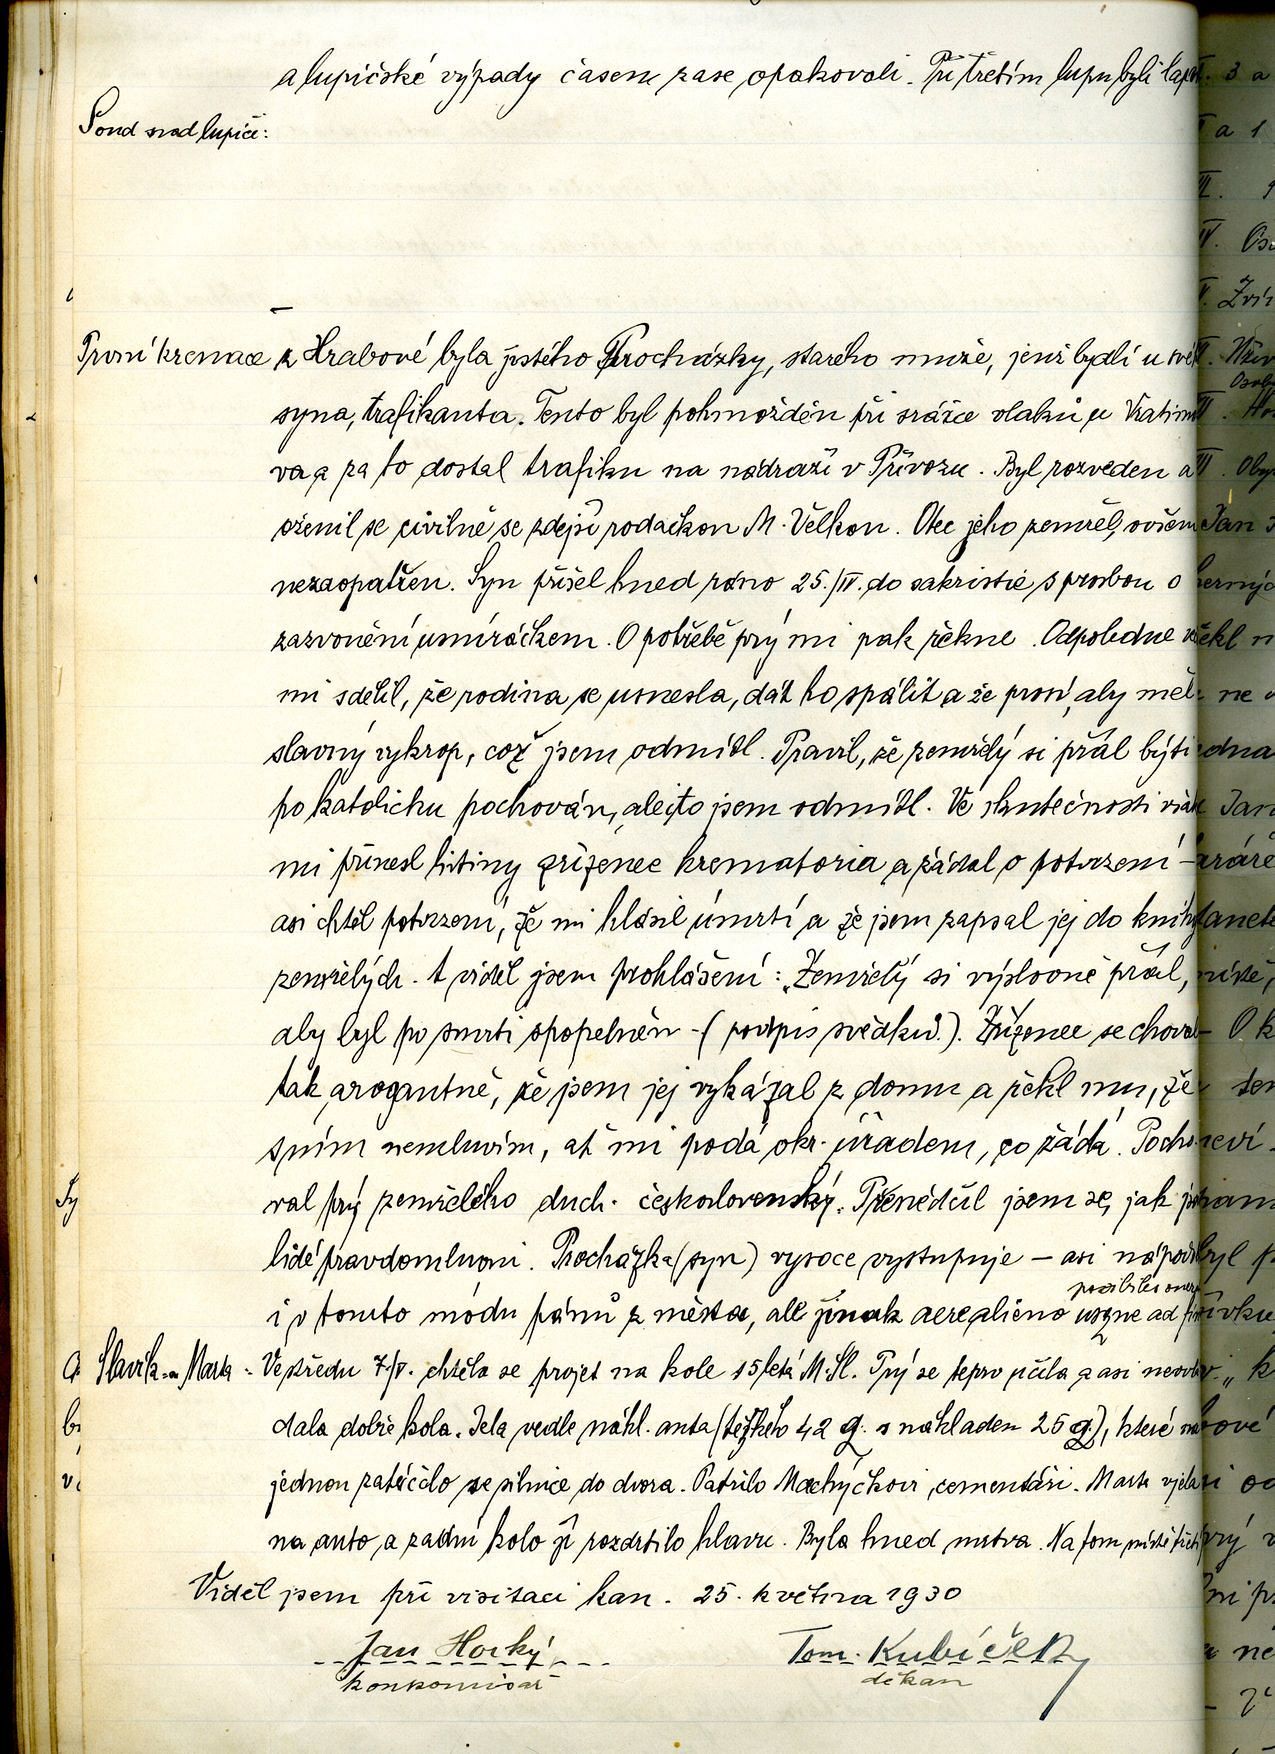 a lupičské výpady časem zase opakovali. Při třetím lupu byli
Soud nad lupiči:
První kremace z Hrabové byla jistého Procházky, starého muže, jenž bydlí u
syna, trafikanta. Tento byl pohmožděn při srážce vlaků u Vratimo-
va a za to dostal trafiku na nádraží v Přívozu. Byl rozveden a
oženil se civilně se zdejší rodačkou M. Velkou. Otec jeho zemřel, ovšem
nezaopatřen. Syn přišel hned ráno 25./IV. do sakristie s prosbou o
zazvonění umíráčkem. O potřebě prý mi pak řekne. Odpoledne
mi sdělil, že rodina se usnesla, dát ho spálit a že prosí, aby měl
slavný výkrop, což jsem odmítl. Pravil, že zemřelý si přál býti
po katolicku pochován, ale to jsem odmítl. Ve skutečnosti však
mi přinesl listiny zřízenec krematoria a žádal o potvrzení -
asi chtěl potvrzení, že mi hlásil úmrtí a že jsem zapsal jej do knihy
zemřelých. A viděl jsem prohlášení: „Zemřelý si výslovně přál,
aby byl po smrti zpopelněn - (podpis svědků.). Zřízenec se choval
tak arogantně, že jsem jej vykázal z domu a řekl mu, že
s ním nemluvím, ať mi podá okr. úřadem, co žádá. Pocho-
val prý zemřelého duch. československý. Přesvědčil jsem se, jak
lidé pravdomluvní. Procházka (syn) vysoce vystupuje - asi
i v tomto módu pánů z města, ale jinak aere alieno usque ad
Slavík-ova Marta - Ve středu 7/V. chtěla se projet na kole 15letá M. Sl. Prý se teprv učila a asi neovlá-
dala dobře kola. Jela vedle nákl. auta (těžkého 42 q. s nákladem 25 q.), které
jednou zatočilo se silnice do dvora. Patřilo Machýčkovi, cementáři. Marta vjela
na auto, a zadní kolo jí rozdrtilo hlavu. Byla hned mrtva. Na tom místě
Viděl jsem při visitaci kan. 25. května 1930
Jan Horký Tom. Kubíček
konkomisař děkan